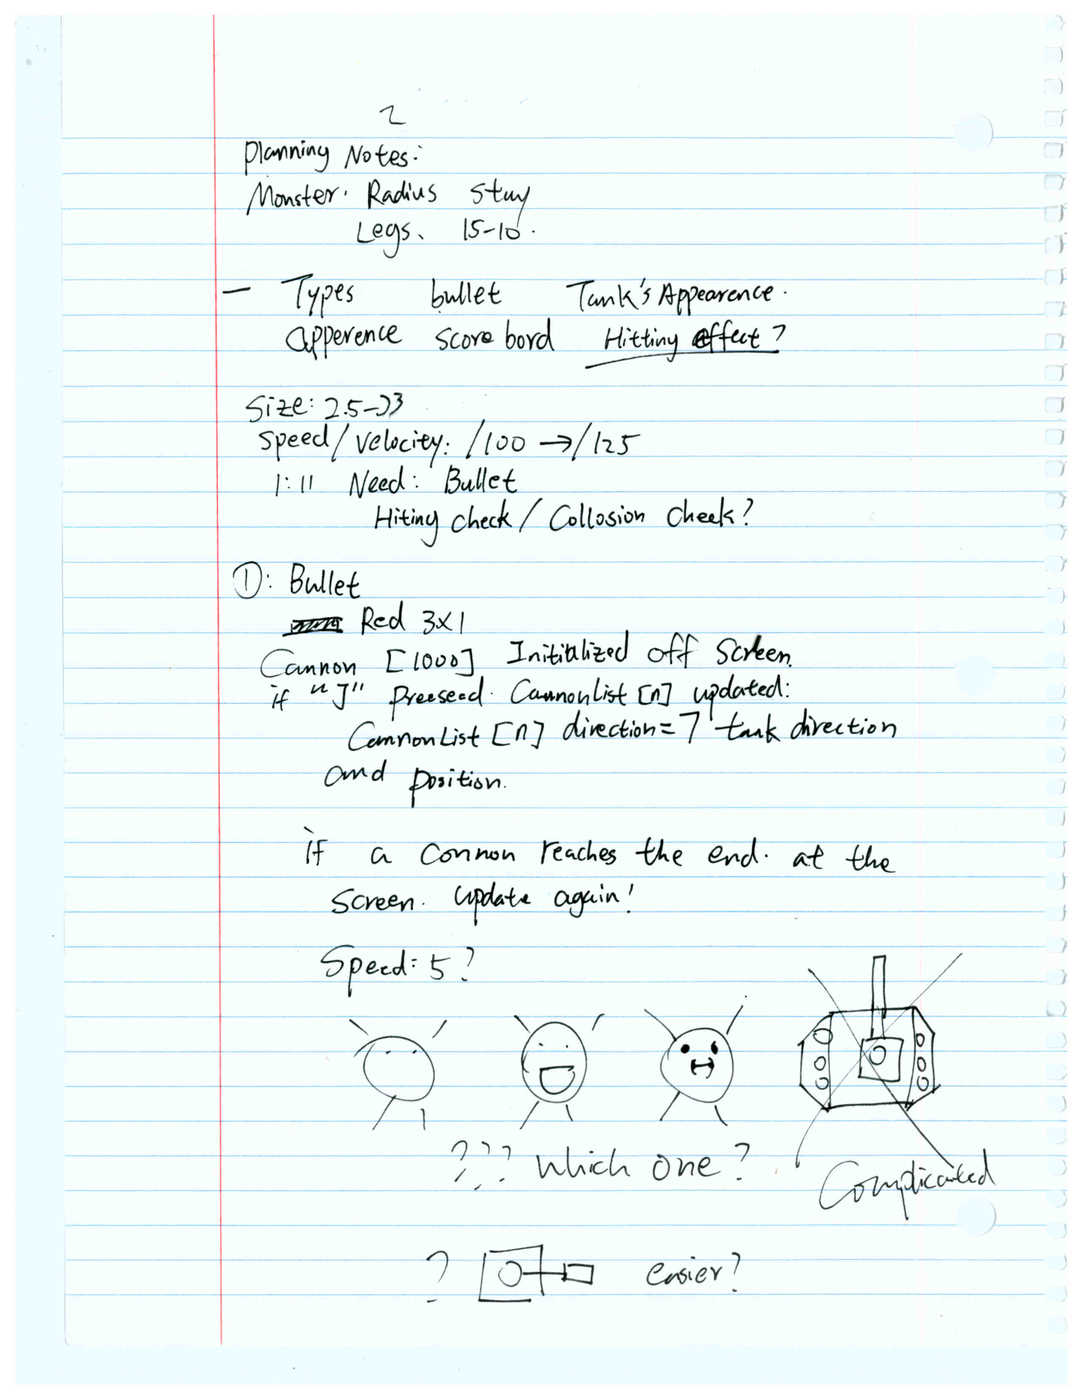 2
Planning Notes:
Monster. Radius stay
Legs. 15-10.
— Types bullet Tank's Appearence.
apperence score bord Hitting effect?
Size: 25→33
Speed/Velocity: /100 → /125
1:11 Need: Bullet
Hiting check / Collosion cheek?
①: Bullet
Red 3x1
Cannon [1000] Initialized off Screen.
if "J" preeseed. CannonList [n] updated:
CannonList [n] direction = 7 tank direction
and position.
if a Connon reaches the end. at the
Screen. update again!
Speed: 5?
??? Which one?
Complicated
? easier?